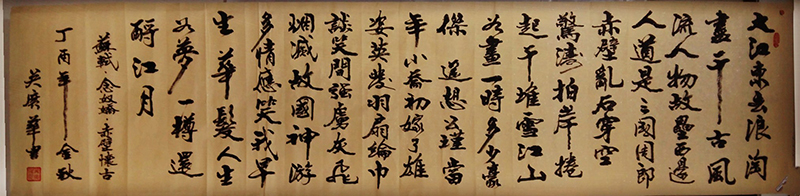 大江東去浪淘
盡千古風
流人物故壘西邊
人道是三國周郎
赤壁亂石穿空
驚濤拍岸捲
起千堆雪江山
如畫一時多少豪
傑遥想公瑾當
年小喬初嫁了雄
姿英發羽扇綸巾
談笑間強虜灰飛
烟滅故國神游
多情應笑我早
生華髮人生
如夢一樽還
酹江月
蘇軾·念奴嬌·赤壁懷古
丁丙年金秋
華書